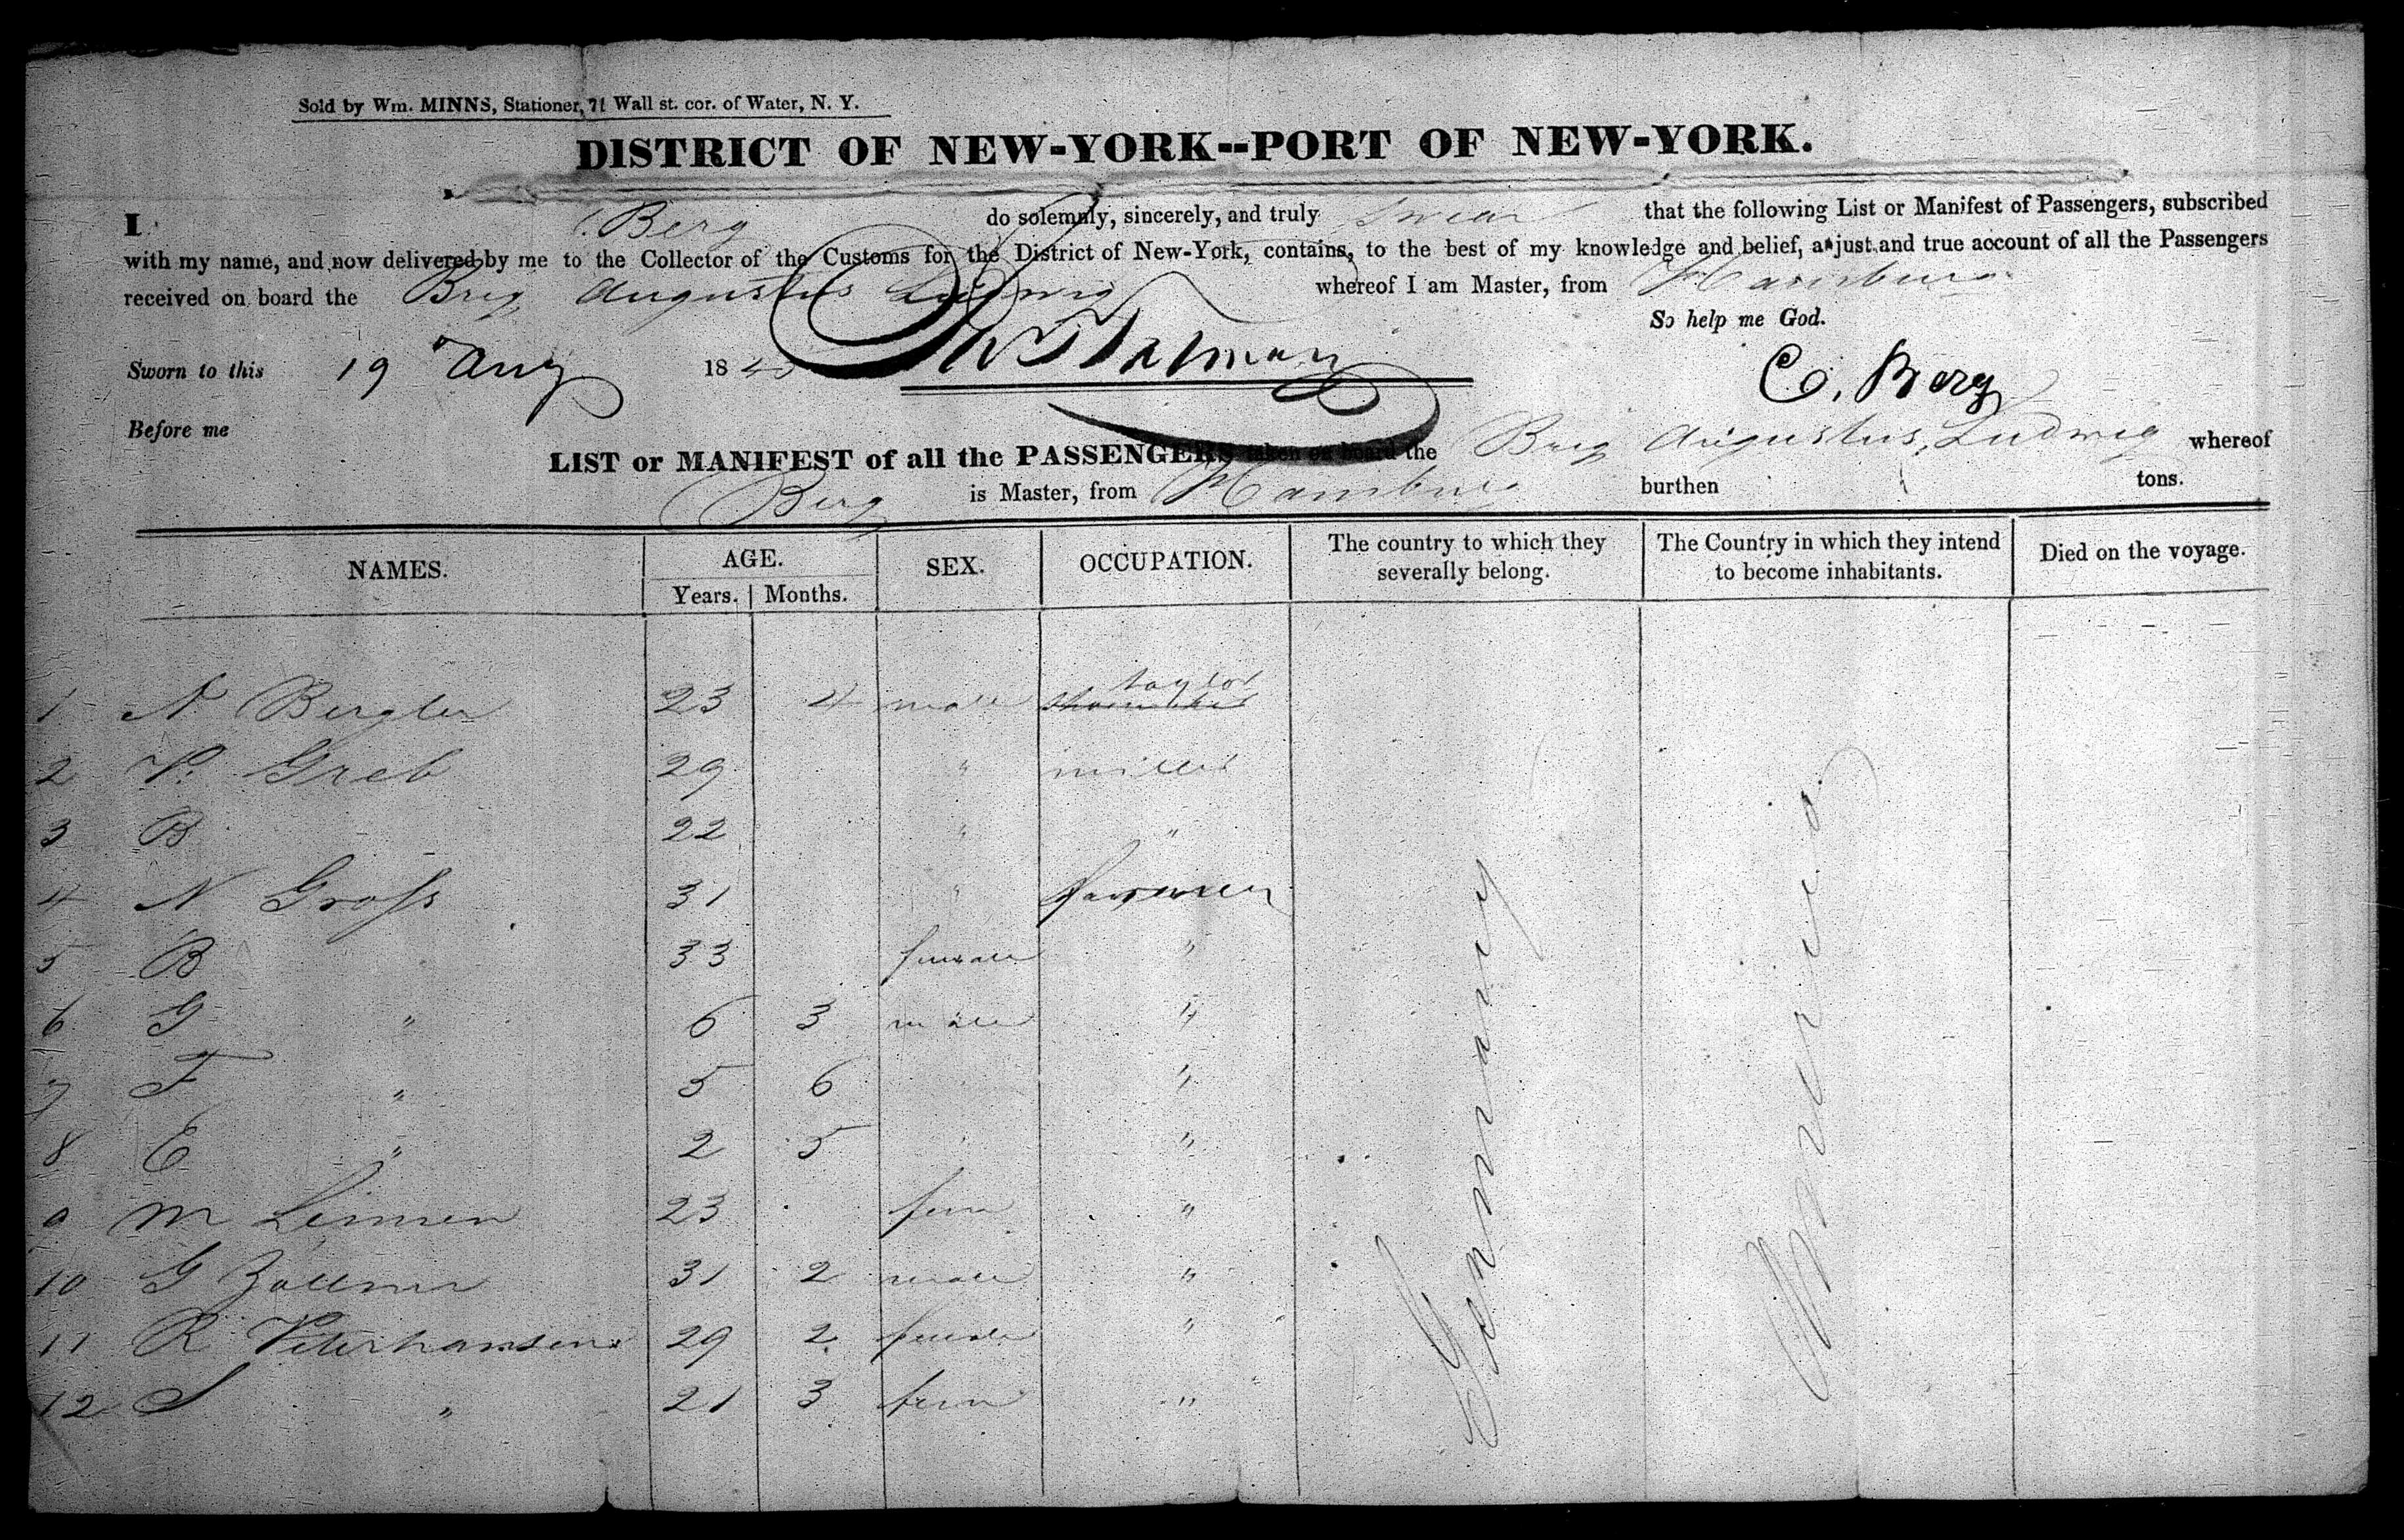 Sold by Wm. MINNS, Stationer, 71 Wall st. cor. of Water, N. Y.
DISTRICT OF NEW-YORK--PORT OF NEW-YORK.
I Berg do solemnly, sincerely, and truly swear that the following List or Manifest of Passengers, subscribed
with my name, and now delivered by me to the Collector of the Customs for the District of New-York, contains, to the best of my knowledge and belief, a just and true account of all the Passengers
received on board the Brig Augustus Ludwig whereof I am Master, from Hamburg
So help me God.
Sworn to this 19 Aug 184
C. Berg
Before me
LIST or MANIFEST of all the PASSENGERS taken on board the Brig Augustus Ludwig whereof
Berg is Master, from Hamburg burthen tons.
NAMES. AGE. SEX. OCCUPATION. The country to which they severally belong. The Country in which they intend to become inhabitants. Died on the voyage.
Years. Months.
taylor
1 N Bergler 23 4 male
2 P. Greb 29 " miller
3 B 22 " "
4 N Gross 31 " farmer
5 B 33 female "
6 G " 6 3 male "
7 F " 5 6 "
8 E " 2 5 " "
9 M 23 fem "
10 G 31 2 male "
11 R Peterhansen 29 2 female "
12 S " 21 3 fem "
Germany